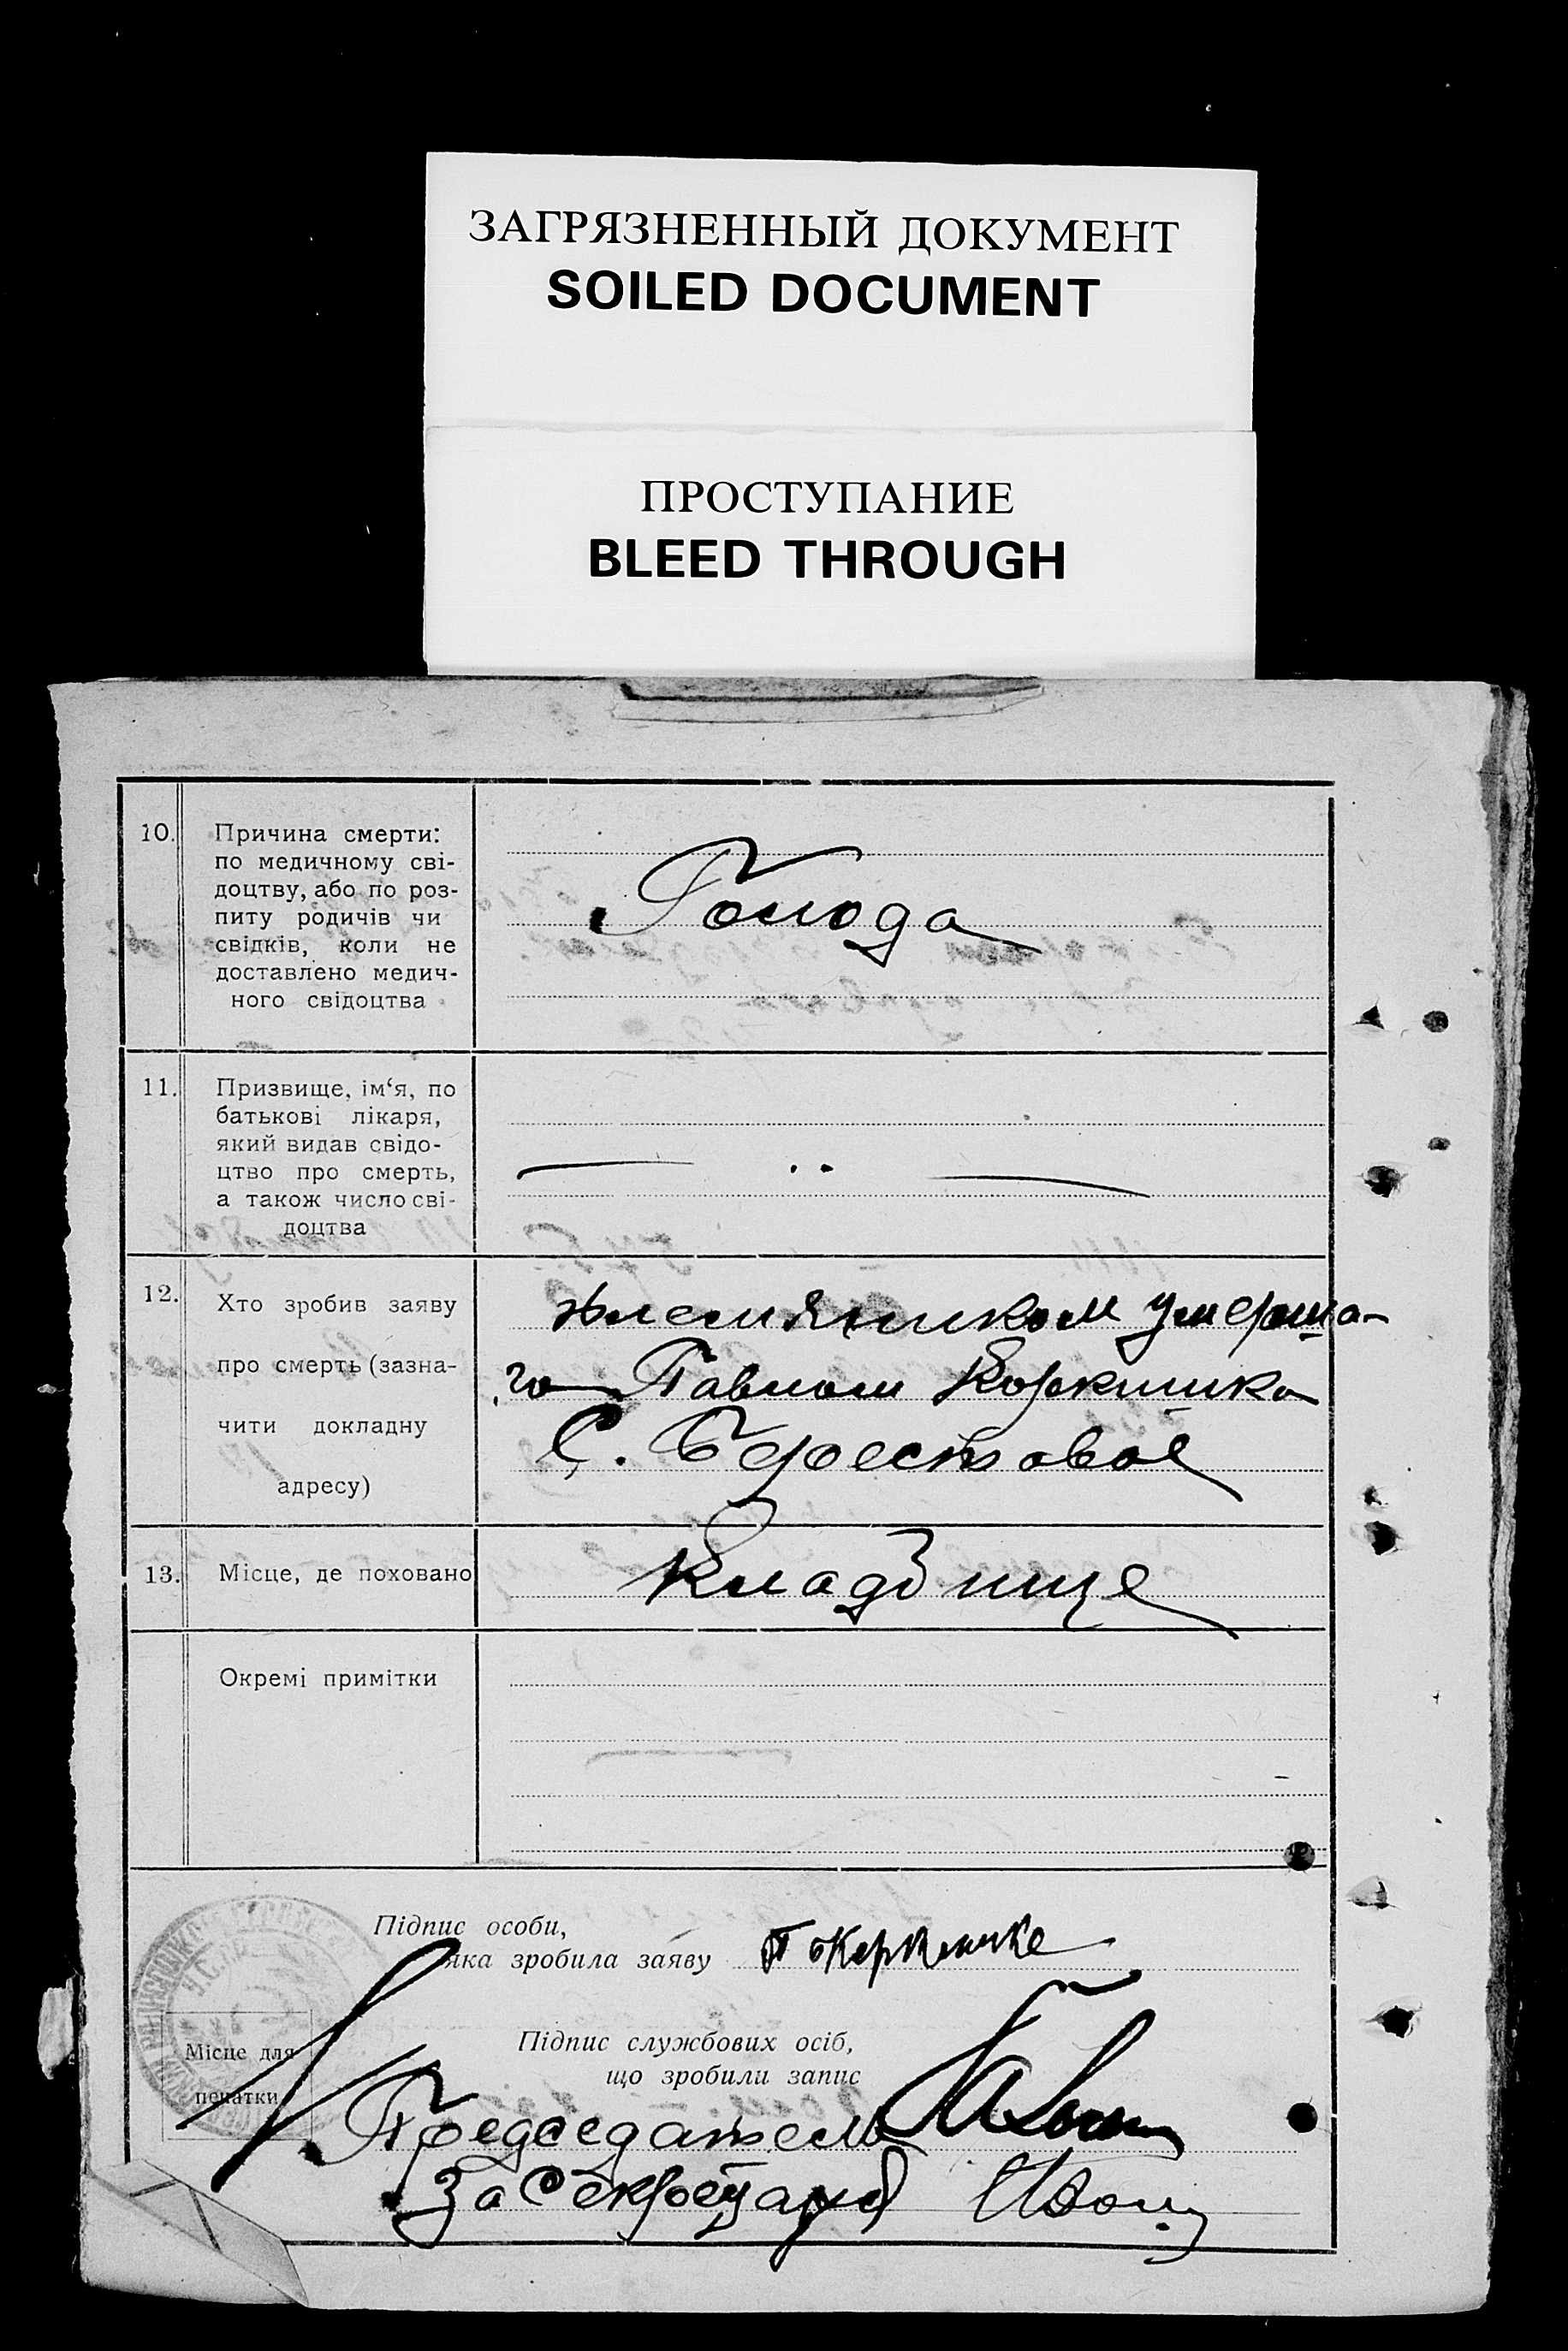 ЗАГРЯЗНЕННЫЙ ДОКУМЕНТ
SOILED DOCUMENT
ПРОСТУПАНИЕ
BLEED THROUGH
10.
Причина смерти:
по медичному сві-
доцтву, або по роз-
питу родичів чи
свідків, коли не
доставлено медич-
ного свідоцтва
Голода
11.
Призвище, ім‘я, по
батькові лікаря,
який видав свідо-
цтво про смерть,
а також число сві-
доцтва
— .. —
12.
Хто зробив заяву
про смерть (зазна-
чити докладну
адресу)
племянником умерша-
го Павлом
С. Берестовое
13.
Місце, де поховано
Кладбище
Окремі примітки
Підпис особи,
яка зробила заяву
Місце для
печатки
Підпис службових осіб,
що зробили запис
Председатель
За Секретаря